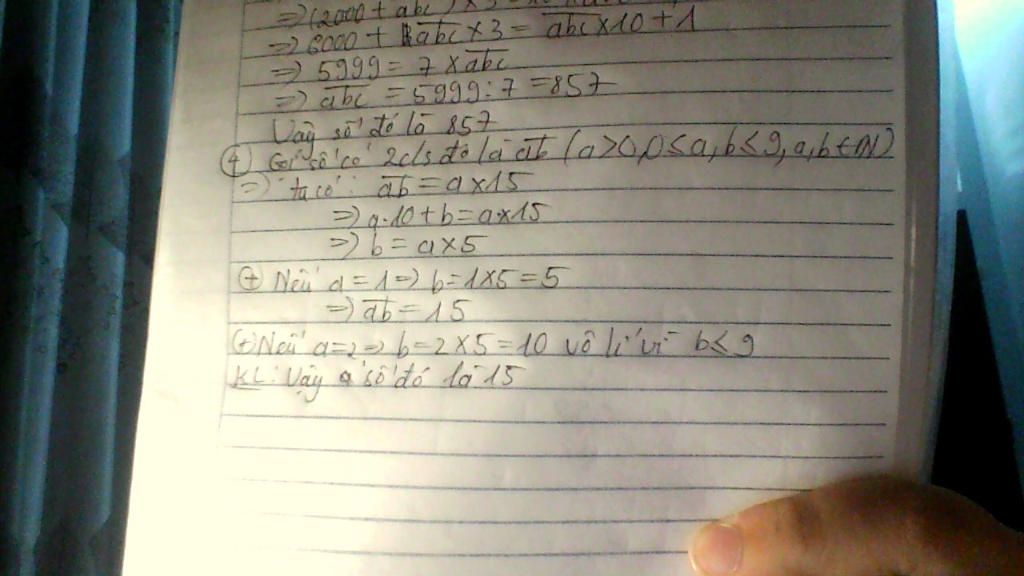 ⇒ (2000 + abc) × 3
⇒ 6000 + abc × 3 = abc × 10 + 1
⇒ 5999 = 7 × abc
⇒ abc = 5999 : 7 = 857
Vậy số đó là 857
④ Gọi số có 2 c/s đó là ab (a > 0, 0 ≤ a, b ≤ 9, a, b ∈ N)
⇒ ta có: ab = a × 15
⇒ a.10 + b = a × 15
⇒ b = a × 5
⊕ Nếu a = 1 ⇒ b = 1 × 5 = 5
⇒ ab = 15
⊕ Nếu a = 2 ⇒ b = 2 × 5 = 10 vô lí vì b ≤ 9
KL: Vậy số đó là 15